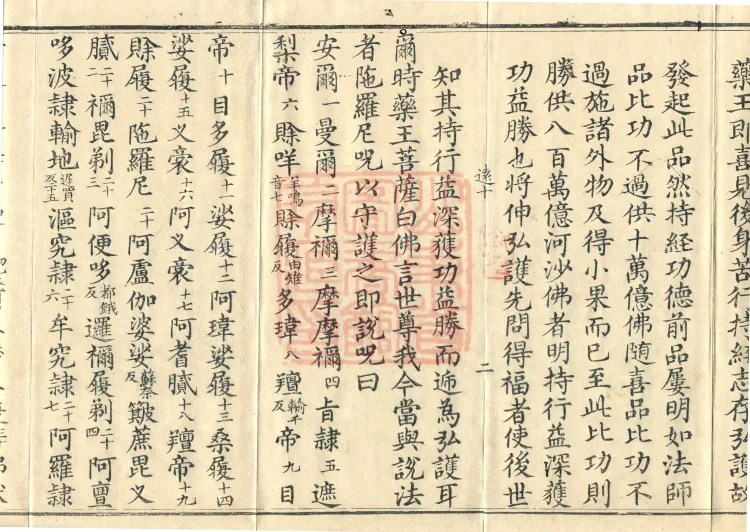 藥王即喜見後身苦行持經志存弘護故
發起此品然持經功德前品屢明如法師
品比功不過供十萬億佛随喜品比功不
過施諸外物及得小果而已至此比功則
勝供八百萬億河沙佛者明持行益深獲
功益勝也将伸弘護先問得福者使後世
遠十 二
知其持行益深獲功益勝而遞為弘護耳
爾時藥王菩薩白佛言世尊我今當與說法
者陁羅尼呪以守護之即說呪曰
安爾一曼爾二摩禰三摩摩禰四旨隷五遮
梨帝六賖咩羊鳴音七賖履由雉反多瑋八羶輸千反帝九目
帝十目多履十一娑履十二阿瑋娑履十三桑履十四
娑履十五叉裔十六阿叉裔十七阿耆膩十八羶帝十九
賖履二十陁羅尼二十一阿盧伽婆娑蘇奈反簸蔗毘叉
膩二十二禰毘剃二十三阿便哆都餓反邏禰履剃二十四阿亶
哆波隷輸地遲賈反二十五漚究隷二十六牟究隷二十七阿羅隷